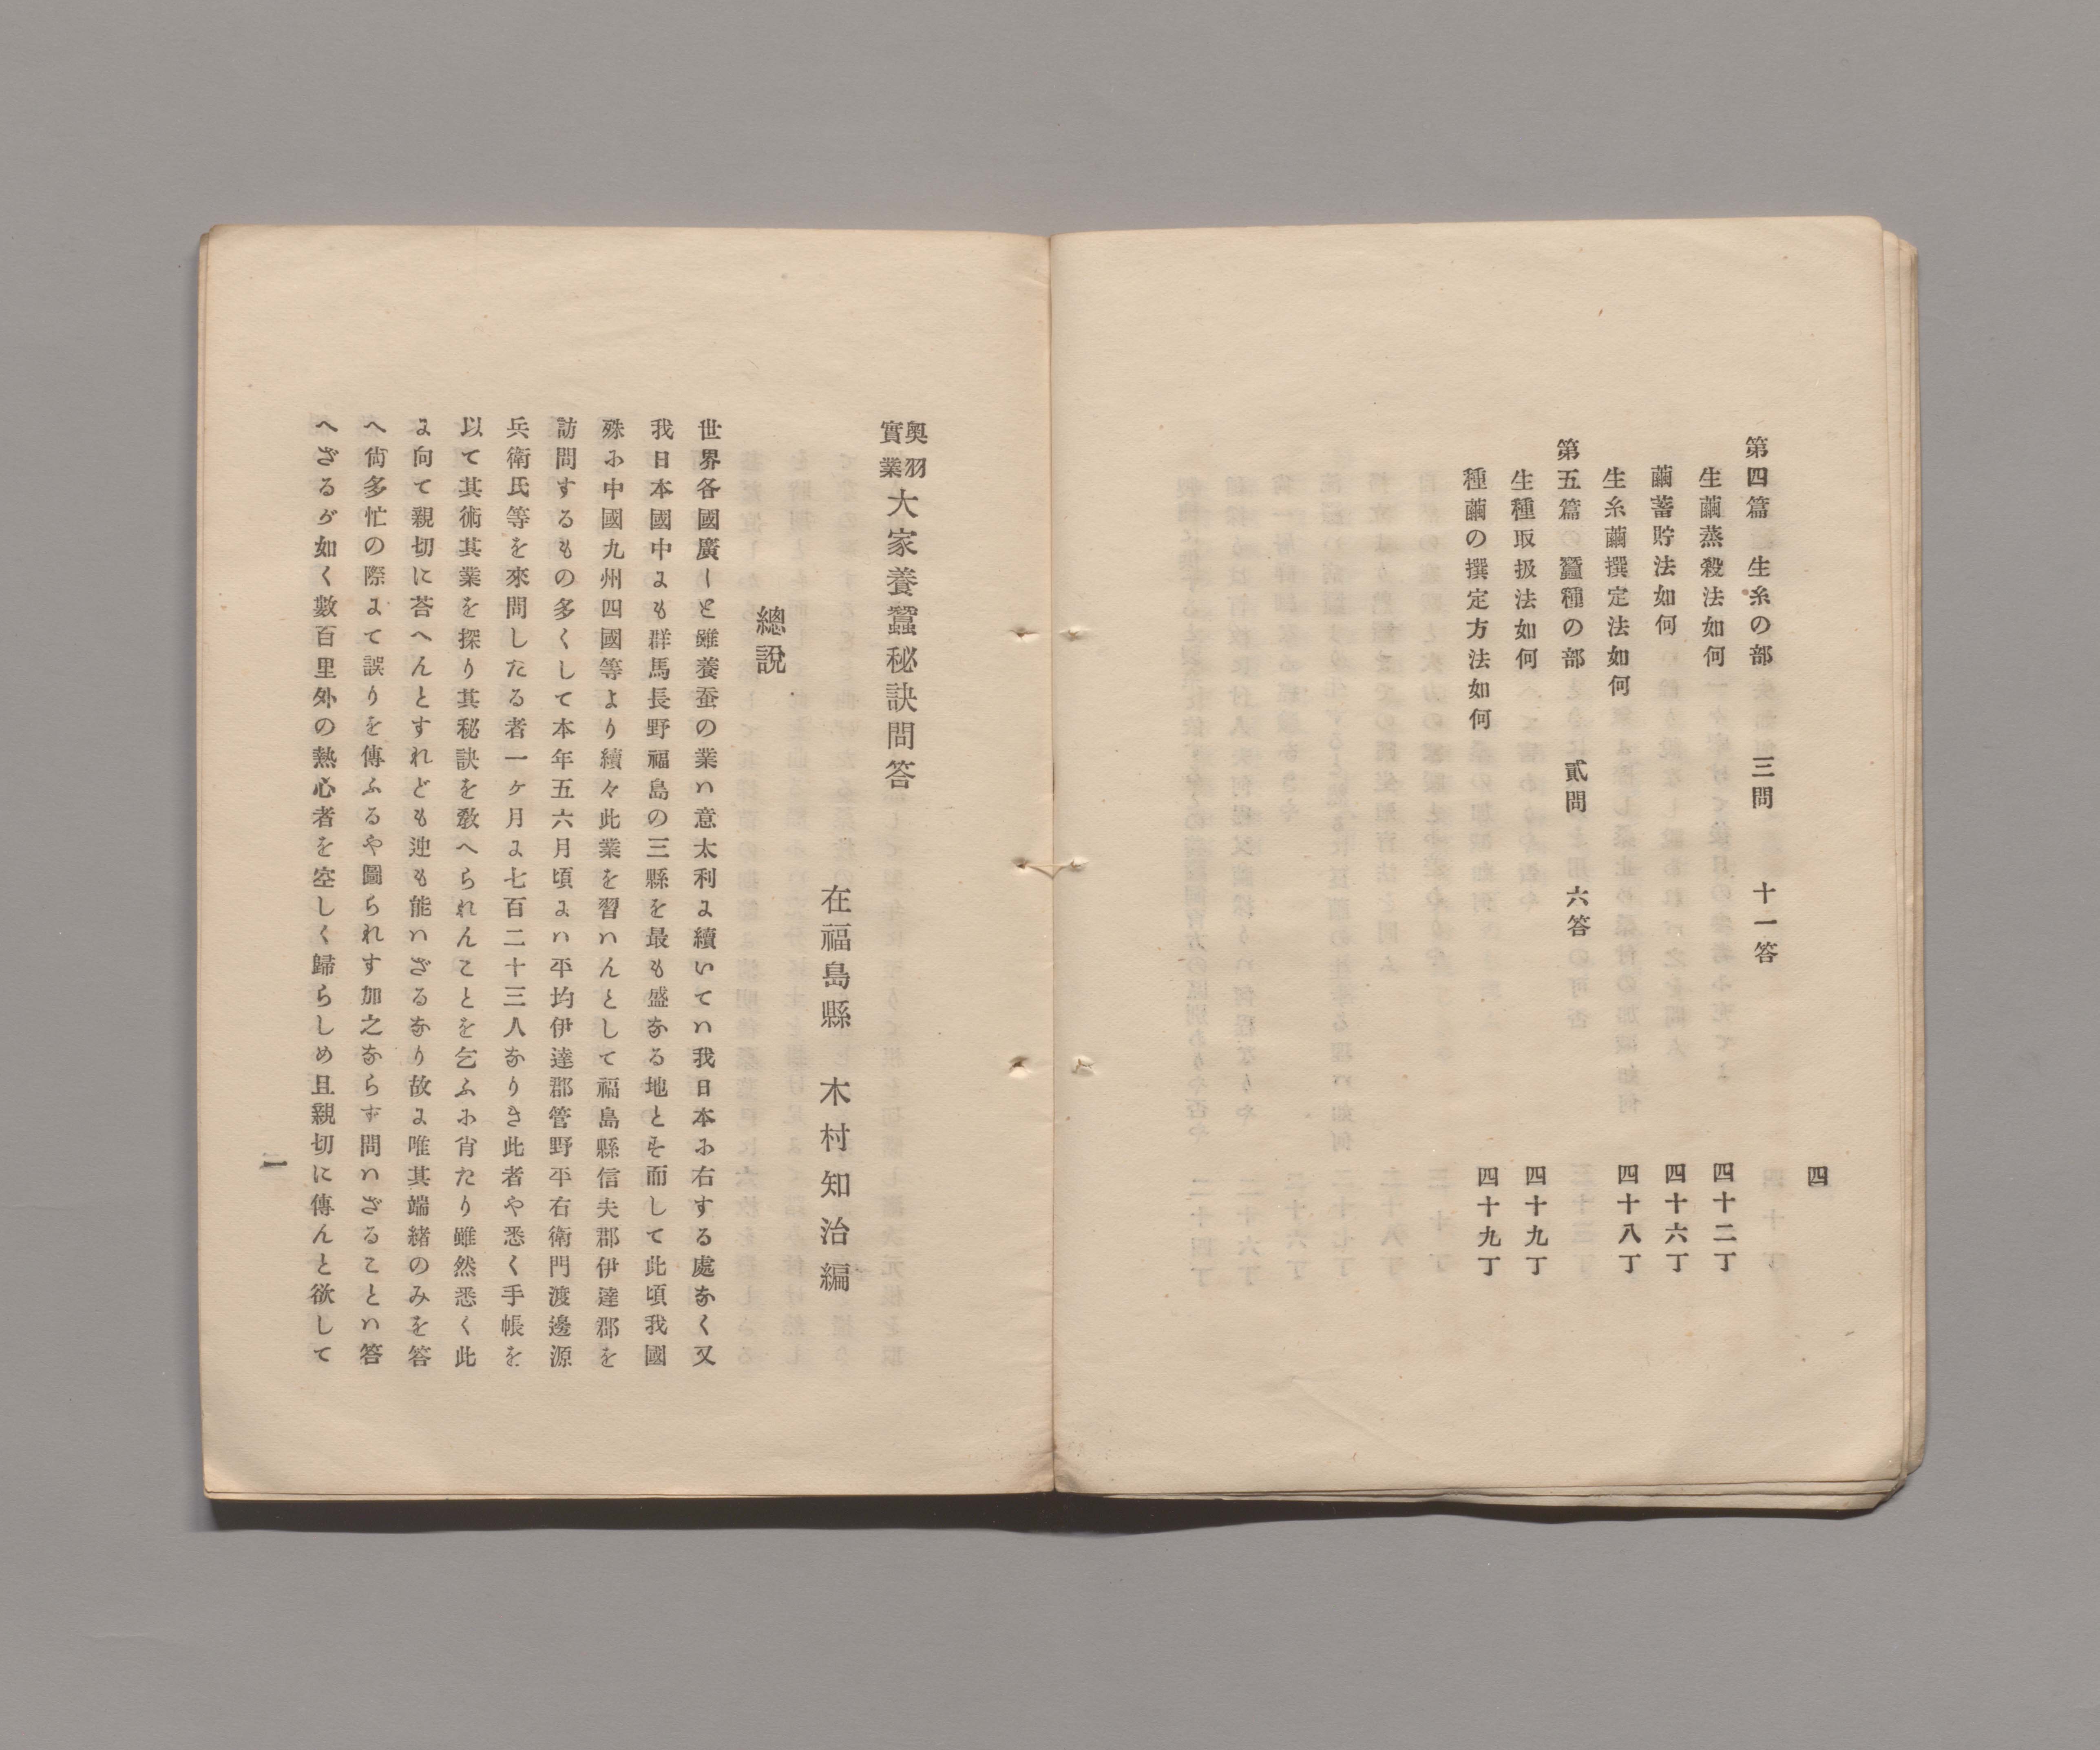 四
第四篇　生糸の部　三問　十一答
生繭蒸殺法如何　四十二丁
繭蓄貯法如何　四十六丁
生糸繭撰定法如何　四十八丁
第五篇　蠶種の部　貳問　六答
生種取扱法如何　四十九丁
種繭の撰定方法如何　四十九丁
奥羽實業大家養蠶秘訣問答
在福島縣　木村知治編
總說
世界各國廣しと雖養蚕の業ハ意太利に續いてハ我日本に右する處なく又
我日本國中にも群馬長野福島の三縣を最も盛なる地とそ而して此頃我國
殊に中國九州四國等より續々此業を習ハんとして福島縣信夫郡伊達郡を
訪問するもの多くして本年五六月頃にハ平均伊達郡管野平右衛門渡邊源
兵衛氏等を來問したる者一ヶ月に七百二十三人なりき此者や悉く手帳を
以て其術其業を探り其秘訣を敎へられんことを乞ふに肖たり雖然悉く此
に向て親切に荅へんとすれども迚も能ハざるなり故に唯其端緒のみを答
へ尙多忙の際にて誤りを傳ふるや圖られす加之ならず問ハざることハ答
へざるが如く數百里外の熱心者を空しく歸らしめ且親切に傳んと欲して
一